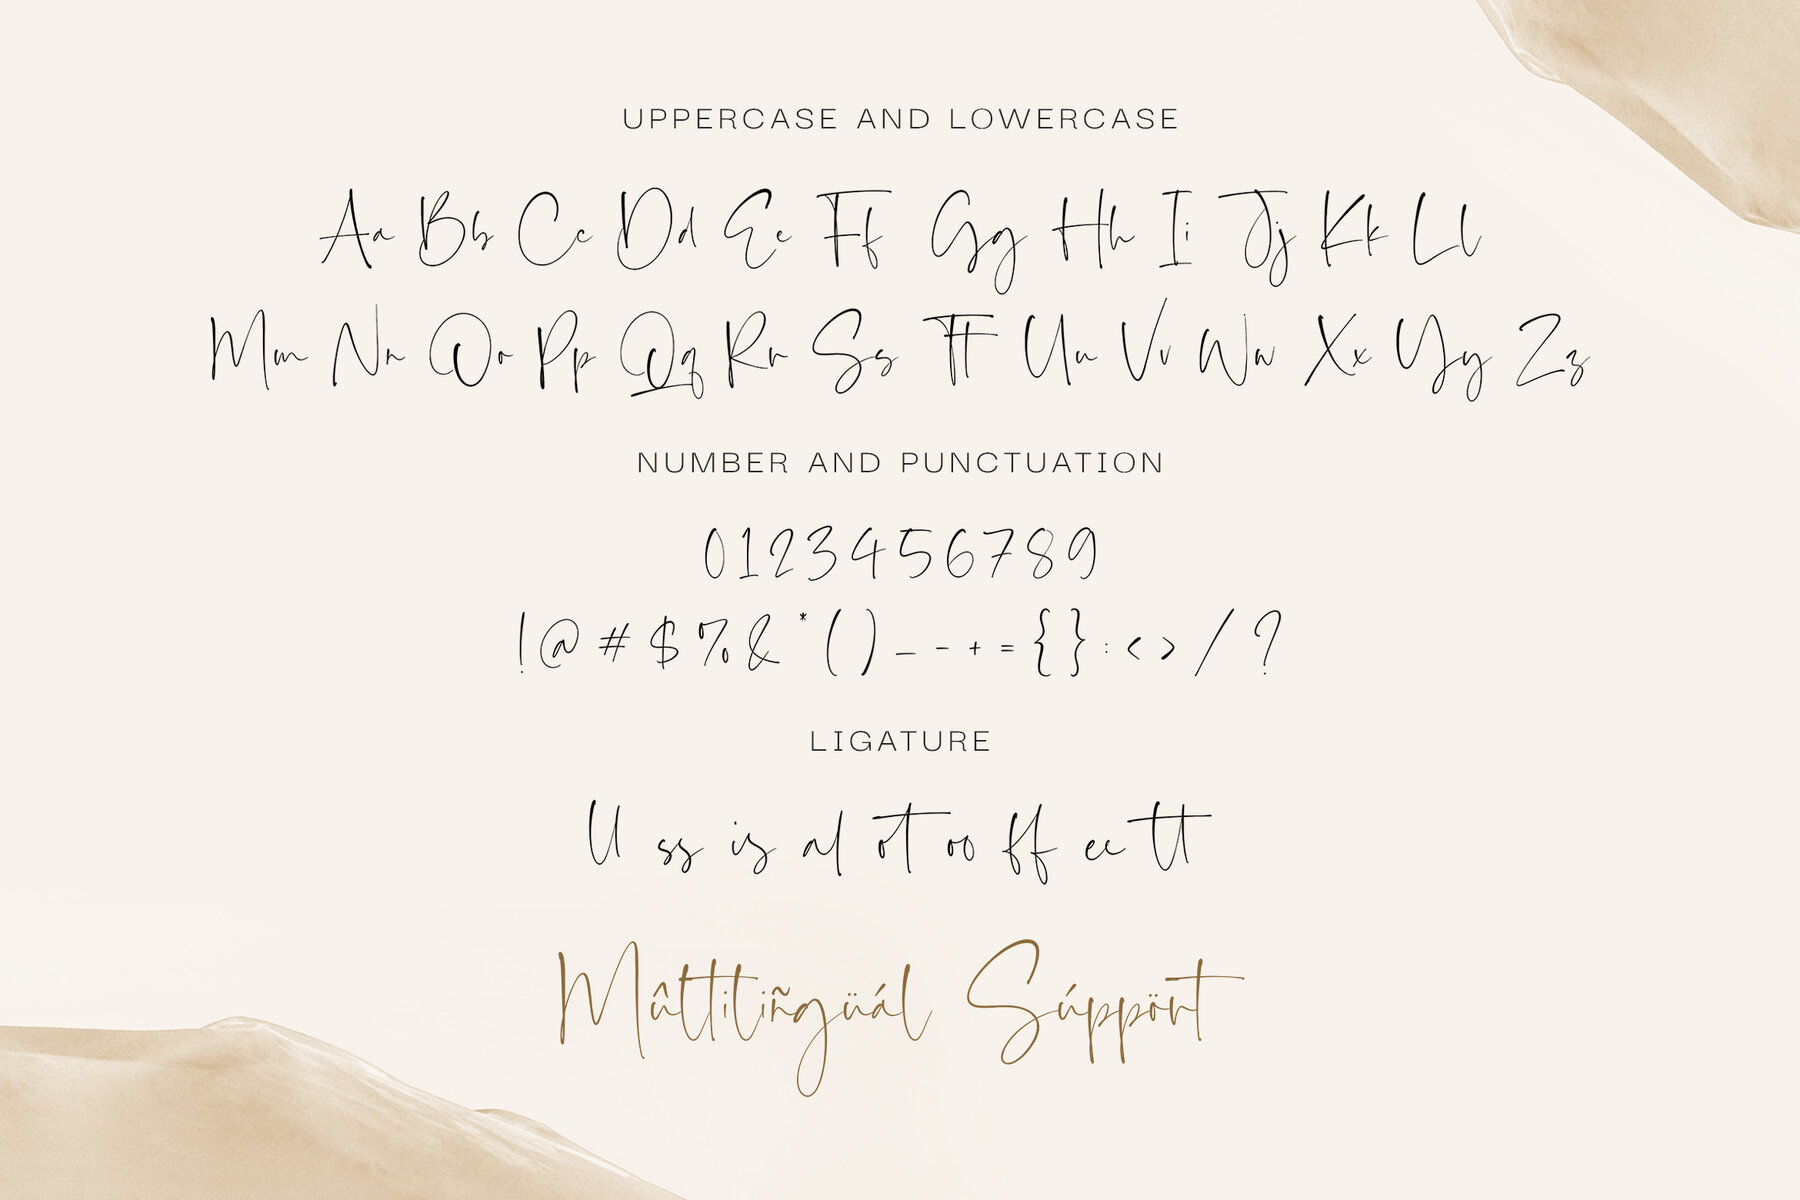 UPPERCASE AND LOWERCASE
Aa Bb Cc Dd Ee Ff Gg Hh Ii Jj Kk Ll
Mm Nn Oo Pp Qq Rr Ss Tt Uu Vv Ww Xx Yy Zz
NUMBER AND PUNCTUATION
0123456789
!@#$%&*()_-+={}:<>/?
LIGATURE
ll ss is al ot oo ff ee tt
Mûltiliñgüál Súppört